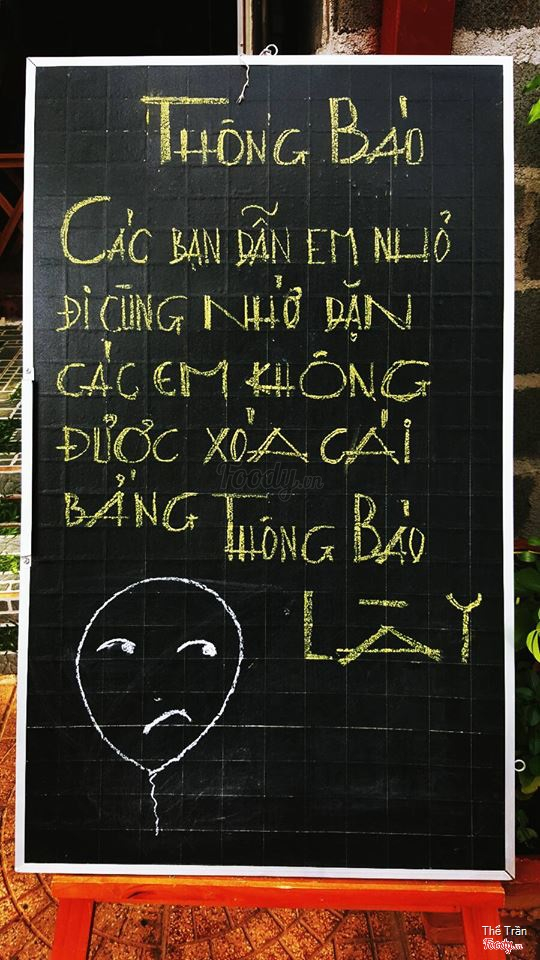 THÔNG BÁO
CÁC BẠN DẪN EM NHỎ
ĐI CÙNG NHỚ DẶN
CÁC EM KHÔNG
ĐƯỢC XÓA CÁI
BẢNG THÔNG BÁO
LÀY
Foody.vn
Thể Trần
Foody.vn